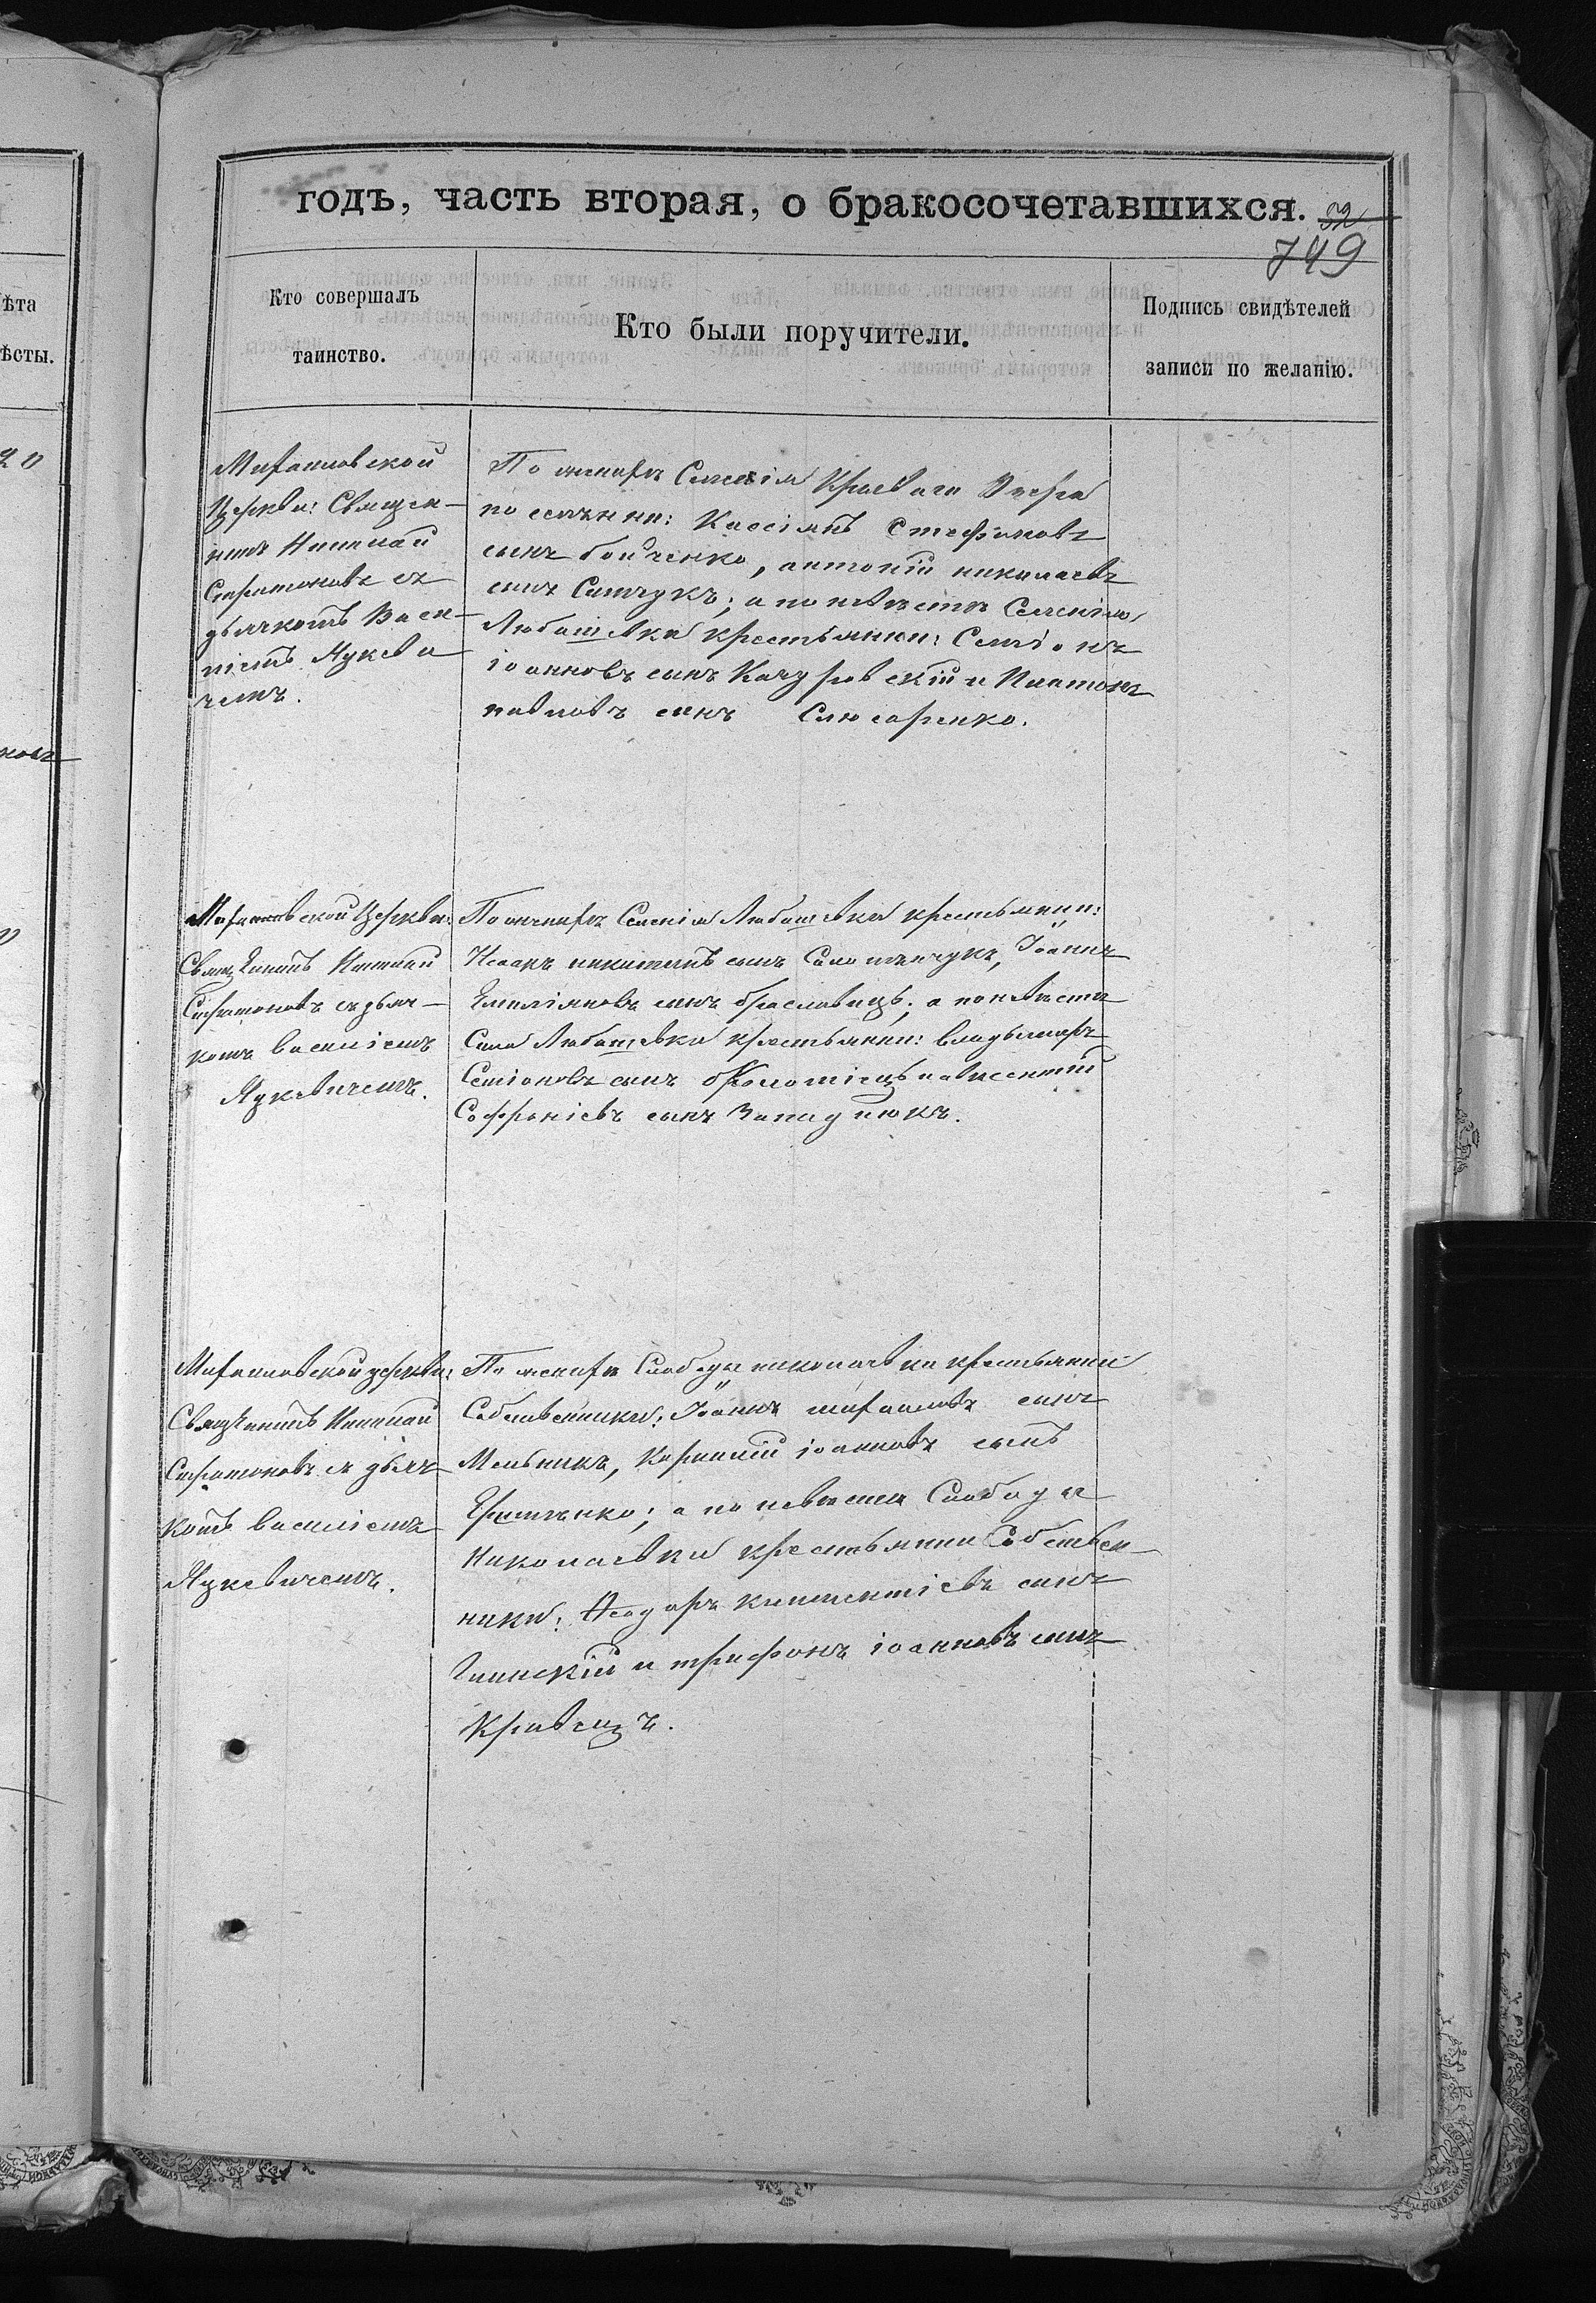 годъ, часть вторая, о бракосочетавшихся.
32
749
ѣта
ѣсты.
20
Кто совершалъ
таинство.
Кто были поручители.
Подпись свидѣтелей
записи по желанію.
Михайловской
Церкви: Священ-
никъ Николай
съ
дьячкомъ Васи-
ліемъ Яцкеви
чемъ.
По женихѣ Селенія Криваго Озера
поселяни: Кассіянъ Стефановъ
сынъ бойченко, антоній николаевъ
сынъ; а по невѣстѣ Селенія
Любашевки крестьяни: Семіонъ
іоанновъ сынъ Качуровскій и Платонъ
павловъ сынъ Слюсаренко.
Михайловской Церкви:
Священникъ Николай
съ дьяч-
комъ василіемъ
Яцкевичемъ.
По женихѣ Селенія Любашевки крестьянии:
Исаакъ никитинъ сынъ Іоаннъ
Емиліяновъ сынъ браславецъ; а по невѣстѣ
Села Любашевки крестьянии: владымиръ
Семіоновъ сынъ и авксентій
Софроніевъ сынъ
Михайловской церкви:
Священникъ Николай
съ дьяч
комъ василіемъ
Яцкевичемъ.
По женихѣ Слободы николаевки крестьянии
Собственники: Іоаннъ михаиловъ сынъ
Мельникъ, Корнилій іоанновъ сынъ
а по невѣстѣ Слободы
Николаевки крестьянии Собствен-
ники: Феодоръ климентіевъ сынъ
Глинскій и трифонъ іоанновъ сынъ
Кравецъ.